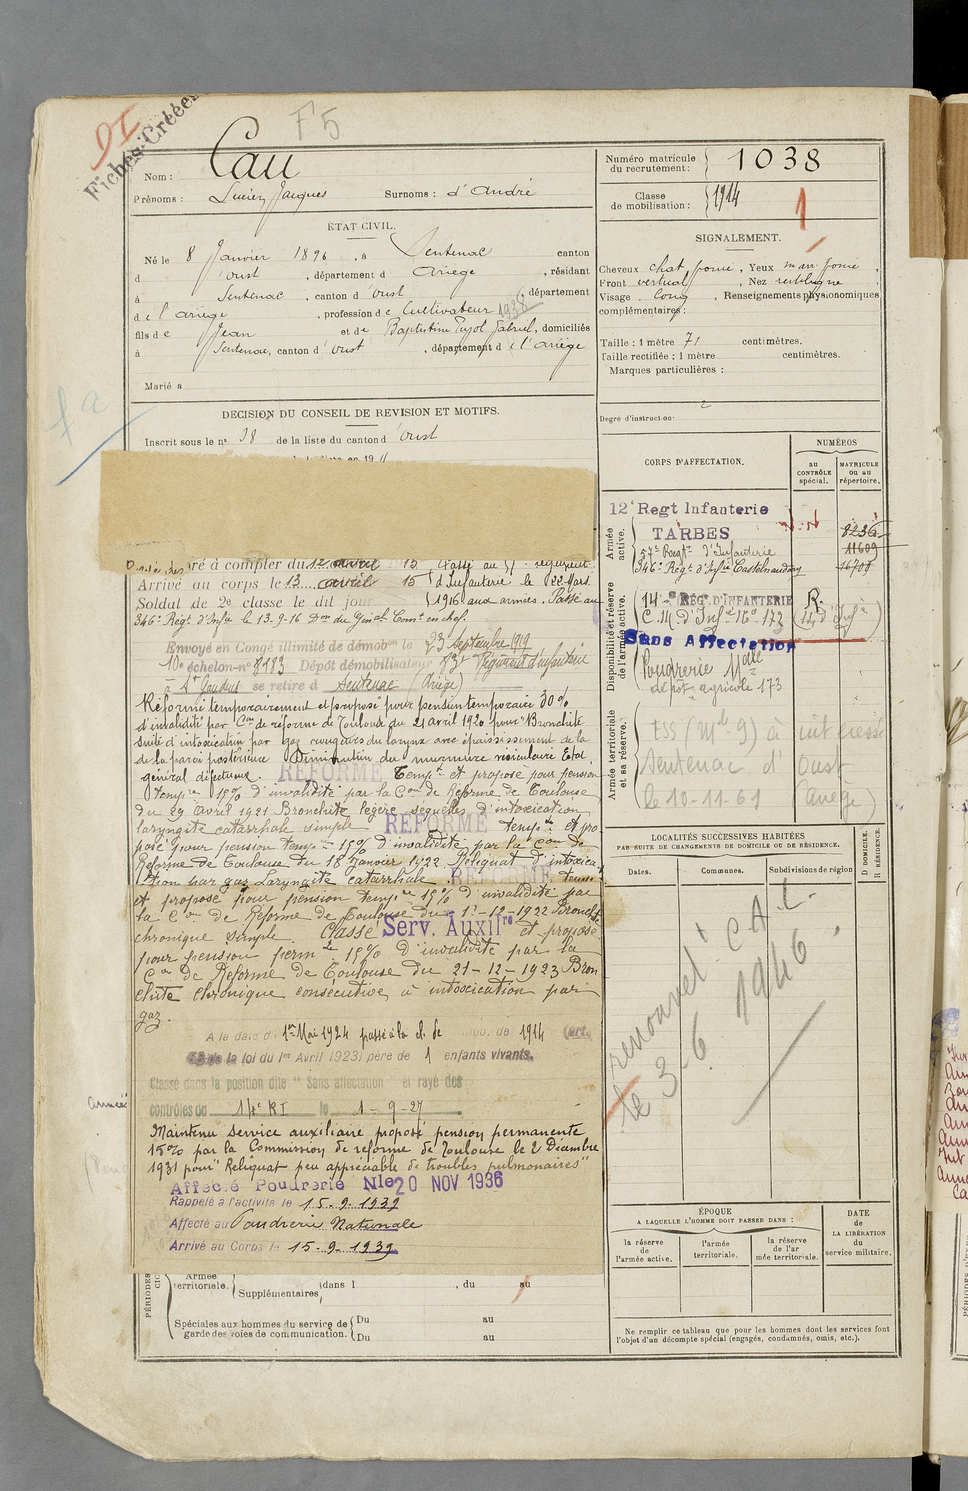 DI
Fiches Créées
F5
Nom : Cau
Prénoms : Lucien Jacques Surnoms : d'André
Numéro matricule du recrutement : 1038
Classe de mobilisation : 1914
1
ÉTAT CIVIL.
Né le 8 Janvier 1896, à Sentenac canton
d'Oust, département d Ariège, résidant
à Sentenac, canton d'Oust, département
de l'Ariège, profession de Cultivateur 1938
fils de Jean et de Baptistine Pujol Gabriel, domiciliés
à Sentenac, canton d'Oust, département de l'Ariège
Marié à
SIGNALEMENT.
Cheveux chat foncé, Yeux marr foncé,
Front vertical, Nez rectiligne,
Visage long, Renseignements physionomiques
complémentaires :
Taille : 1 mètre 71 centimètres.
Taille rectifiée : 1 mètre centimètres.
Marques particulières :
Degré d'instruction 2
1a
DÉCISION DU CONSEIL DE RÉVISION ET MOTIFS.
Inscrit sous le n° 38 de la liste du canton d'Oust
à compter du 12 avril 15
Arrivé au corps le 13 avril 15
Soldat de 2e classe le dit jour
Passé au 57e régiment
d'Infanterie le 22 Mars
1916 aux armées. Passé au
346e Régt d'Infie le 13-9-16 Don du Génal Comt en chef.
Envoyé en Congé illimité de démobon le 23 Septembre 1919
10e échelon-no 8183 Dépôt démobilisateur 83e Régiment d'infanterie
à St Gaudens se retire à Sentenac (Ariège)
Réformé temporairement et proposé pour pension temporaire 30%
d'invalidité par Con de réforme de Toulouse du 21 avril 1920 pour "Bronchite
suite d'intoxication par gaz rougeurs du larynx avec épaississement de la
de la paroi postérieure Diminution du murmure vésiculaire Etat
général défectueux. RÉFORMÉ Tempt et proposé pour pension
tempre 15% d'invalidité par la Con de Réforme de Toulouse
du 29 Avril 1921 Bronchite légère séquelles d'intoxication
laryngite catarrhale simple RÉFORMÉ tempt et pro
posé pour pension tempre 15% d'invalidité par la Con de
Réforme de Toulouse du 18 Janvier 1922 Reliquat d'intoxica
tion par gaz Laryngite catarrhale. RÉFORMÉ tempt
et proposé pour pension tempre 15% d'invalidité par
la Con de Réforme de Toulouse du 1r-12-1922 Bronchite
chronique simple. Classé Serv. Auxilre et proposé
pour pension permte 15% d'invalidité par la
Con de Réforme de Toulouse du 21-12-1923 Bron
chite chronique consécutive à intoxication par
gaz.
A la date du 1er Mai 1924 passé à la cl. de mob. de 1914 (art.
de la loi du 1er Avril 1923) père de 1 enfants vivants.
Classé dans la position dite "Sans affectation" et rayé des
contrôles du 14e RI le 1-9-27
Maintenu service auxiliaire proposé pension permanente
15% par la Commission de réforme de Toulouse le 2 Décembre
1931 pour "Reliquat peu appréciable de troubles pulmonaires"
Affecté Poudrerie Nle 20 NOV 1936
Rappelé à l'activité le 15.9.1939
Affecté au Poudrerie Nationale
Arrivé au Corps le 15-9-1939
PÉRIODES
Armée territoriale.
Supplémentaires
dans l , du au
Spéciales aux hommes du service de garde des voies de communication.
Du au
Du au
CORPS D'AFFECTATION.
NUMÉROS
au CONTRÔLE spécial.
MATRICULE ou au répertoire.
Armée active.
12e Regt Infanterie
TARBES
8236
57e Régt d'Infanterie 11609
346e Régt d'Infie Castelnaudary 16709
Disponibilité et réserve de l'armée active.
14e RÉGt D'INFANTERIE R.
C.M. d'Infie No 173
Sans Affectation
Poudrerie Nalle
dépôt agricole 173
Armée territoriale et sa réserve.
ESS (Mdl-9) à intéressé
Sentenac d'Oust
le 10-11-61 (Ariège)
LOCALITÉS SUCCESSIVES HABITÉES
PAR SUITE DE CHANGEMENTS DE DOMICILE OU DE RÉSIDENCE.
Dates.
Communes.
Subdivisions de région
D DOMICILE.
R RÉSIDENCE.
renouvelt C.A.C.
le 3-6 1946.
ÉPOQUE
A LAQUELLE L'HOMME DOIT PASSER DANS :
la réserve de l'armée active.
l'armée territoriale.
la réserve de l'armée territoriale.
DATE de LA LIBÉRATION du service militaire.
Ne remplir ce tableau que pour les hommes dont les services font
l'objet d'un décompte spécial (engagés, condamnés, omis, etc.).